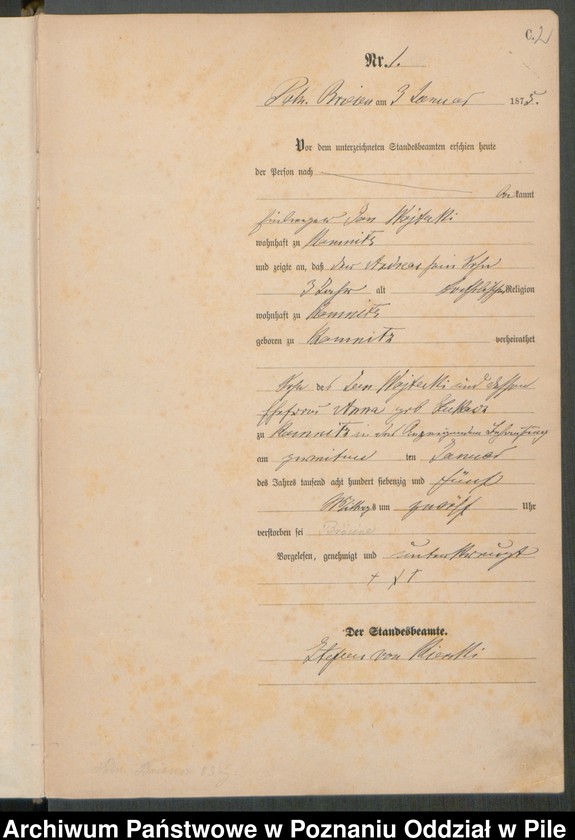 C. 2
Nr. 1.
Poln. Briesen am 3 Januar 1875.
Vor dem unterzeichneten Standesbeamten erschien heute
der Person nach
bekannt
Jan
wohnhaft zu Kamnitz
und zeigte an, daß der Andreas sein Sohn
3 Jahr alt katholischer Religion
wohnhaft zu Kamnitz
geboren zu Kamnitz verheirathet
Sohn des Jan und dessen
Ehefrau Anna geb
zu Kamnitz in der
am zweiten ten Januar
des Jahres tausend acht hundert siebenzig und fünf
Mittags um zwölf Uhr
verstorben sei
Vorgelesen, genehmigt und unterkreuzt
+ + +
Der Standesbeamte.
Stefan von
Archiwum Państwowe w Poznaniu Oddział w Pile